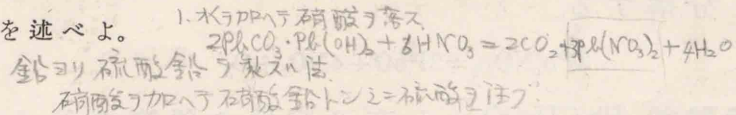 を述べよ。
1. 水ヲ加ヘテ硝酸ヲ落ス
2PbCO₃・Pb(OH)₂ + 6HNO₃ = 2CO₂ + 3Pb(NO₃)₂ + 4H₂O
鉛ヨリ硫酸鉛ヲ製スル法
硝酸ヲ加ヘテ硝酸鉛トシ之ニ硫酸ヲ注グ